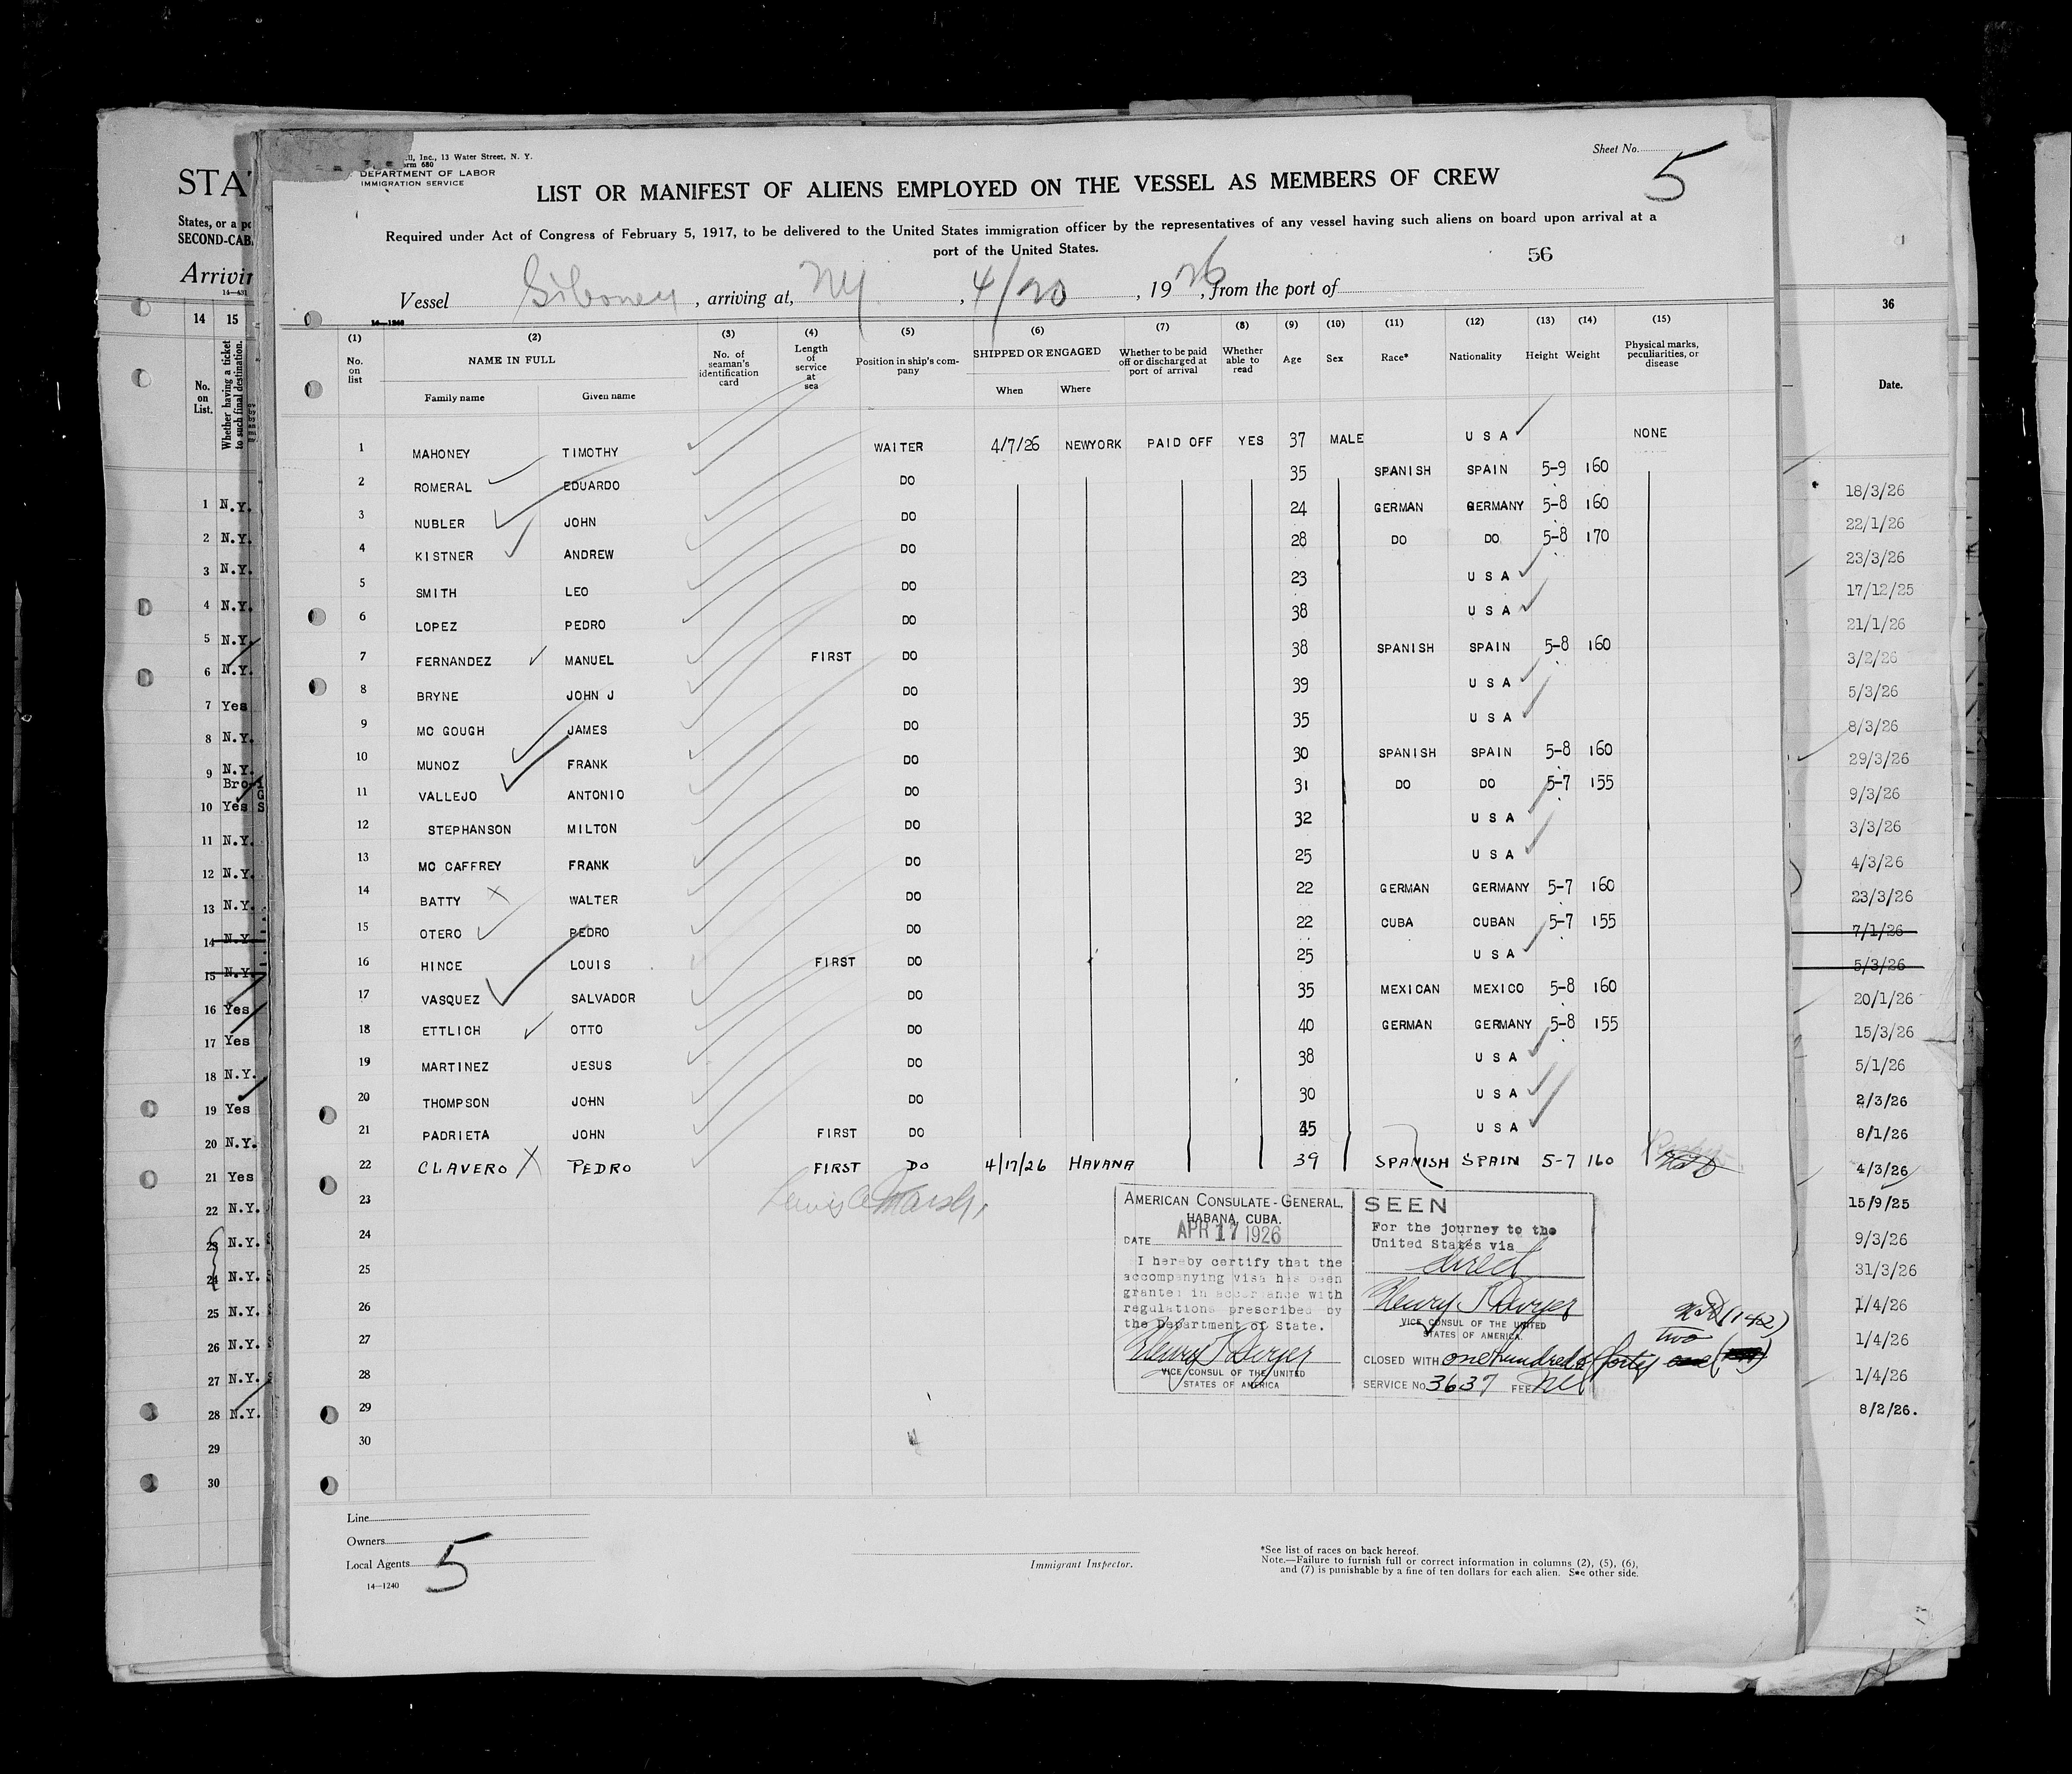 Sheet No. 5
ll, Inc., 13 Water Street, N. Y.
orm 680
DEPARTMENT OF LABOR
IMMIGRATION SERVICE
LIST OR MANIFEST OF ALIENS EMPLOYED ON THE VESSEL AS MEMBERS OF CREW
Required under Act of Congress of February 5, 1917, to be delivered to the United States immigration officer by the representatives of any vessel having such aliens on board upon arrival at a
port of the United States.
56
Vessel Siboney, arriving at, NY, 4/20, 1926, from the port of
14—1240
(1) (2) (3) (4) (5) (6) (7) (8) (9) (10) (11) (12) (13) (14) (15)
No. on list NAME IN FULL Family name Given name No. of seaman's identification card Length of service at sea Position in ship's company SHIPPED OR ENGAGED When Where Whether to be paid off or discharged at port of arrival Whether able to read Age Sex Race* Nationality Height Weight Physical marks, peculiarities, or disease
1 MAHONEY TIMOTHY WAITER 4/7/26 NEWYORK PAID OFF YES 37 MALE U S A NONE
2 ROMERAL EDUARDO DO 35 SPANISH SPAIN 5-9 160
3 NUBLER JOHN DO 24 GERMAN GERMANY 5-8 160
4 KISTNER ANDREW DO 28 DO DO 5-8 170
5 SMITH LEO DO 23 U S A
6 LOPEZ PEDRO DO 38 U S A
7 FERNANDEZ MANUEL FIRST DO 38 SPANISH SPAIN 5-8 160
8 BRYNE JOHN J DO 39 U S A
9 MC GOUGH JAMES DO 35 U S A
10 MUNOZ FRANK DO 30 SPANISH SPAIN 5-8 160
11 VALLEJO ANTONIO DO 31 DO DO 5-7 155
12 STEPHANSON MILTON DO 32 U S A
13 MC CAFFREY FRANK DO 25 U S A
14 BATTY WALTER DO 22 GERMAN GERMANY 5-7 160
15 OTERO PEDRO DO 22 CUBA CUBAN 5-7 155
16 HINCE LOUIS FIRST DO 25 U S A
17 VASQUEZ SALVADOR DO 35 MEXICAN MEXICO 5-8 160
18 ETTLICH OTTO DO 40 GERMAN GERMANY 5-8 155
19 MARTINEZ JESUS DO 38 U S A
20 THOMPSON JOHN DO 30 U S A
21 PADRIETA JOHN FIRST DO 45 U S A
22 CLAVERO PEDRO FIRST DO 4/17/26 HAVANA 39 SPANISH SPAIN 5-7 160
23
24
25
26
27
28
29
30
AMERICAN CONSULATE-GENERAL,
HABANA, CUBA.
DATE APR 17 1926
I hereby certify that the
accompanying visa has been
granted in accordance with
regulations prescribed by
the Department of State.
Henry T Dwyer
VICE CONSUL OF THE UNITED
STATES OF AMERICA
SEEN
For the journey to the
United States via
direct
Henry T Dwyer
VICE CONSUL OF THE UNITED
STATES OF AMERICA.
(142)
two
CLOSED WITH one hundred & forty one
SERVICE No. 3637 FEE Nil
Line
Owners
Local Agents
5
14—1240
Immigrant Inspector.
*See list of races on back hereof.
Note.—Failure to furnish full or correct information in columns (2), (5), (6),
and (7) is punishable by a fine of ten dollars for each alien. See other side.
STA
States, or a po
SECOND-CAB
Arrivin
14 15
No. on List. Whether having a ticket to such final destination.
1 N.Y.
2 N.Y.
3 N.Y.
4 N.Y.
5 N.Y.
6 N.Y.
7 Yes
8 N.Y.
9 N.Y.
Bro
10 Yes
11 N.Y.
12 N.Y.
13 N.Y.
14 N.Y.
15 N.Y.
16 Yes
17 Yes
18 N.Y.
19 Yes
20 N.Y.
21 Yes
22 N.Y.
23 N.Y.
24 N.Y.
25 N.Y.
26 N.Y.
27 N.Y.
28 N.Y.
29
30
36
Date.
18/3/26
22/1/26
23/3/26
17/12/25
21/1/26
3/2/26
5/3/26
8/3/26
29/3/26
9/3/26
3/3/26
4/3/26
23/3/26
7/1/26
5/3/26
20/1/26
15/3/26
5/1/26
2/3/26
8/1/26
4/3/26
15/9/25
9/3/26
31/3/26
1/4/26
1/4/26
1/4/26
8/2/26.